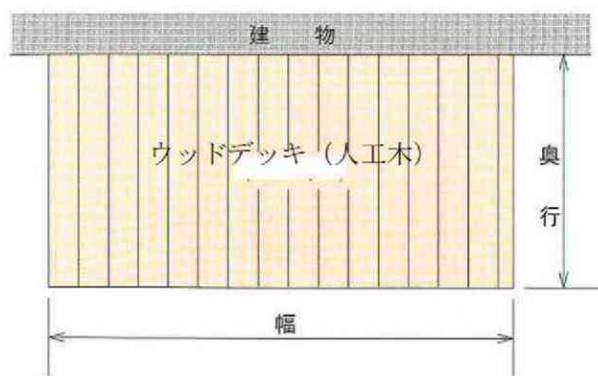 建 物
ウッドデッキ (人工木)
奥行
幅